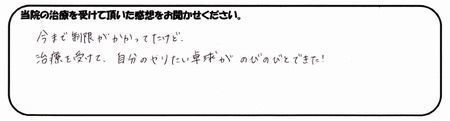 当院の治療を受けて頂いた感想をお聞かせください。
今まで制限がかかってたけど、
治療を受けて、自分のやりたい卓球がのびのびとできた!